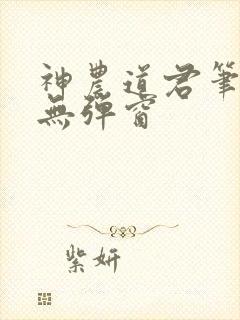 神農道君筆
無彈窗
紫妍